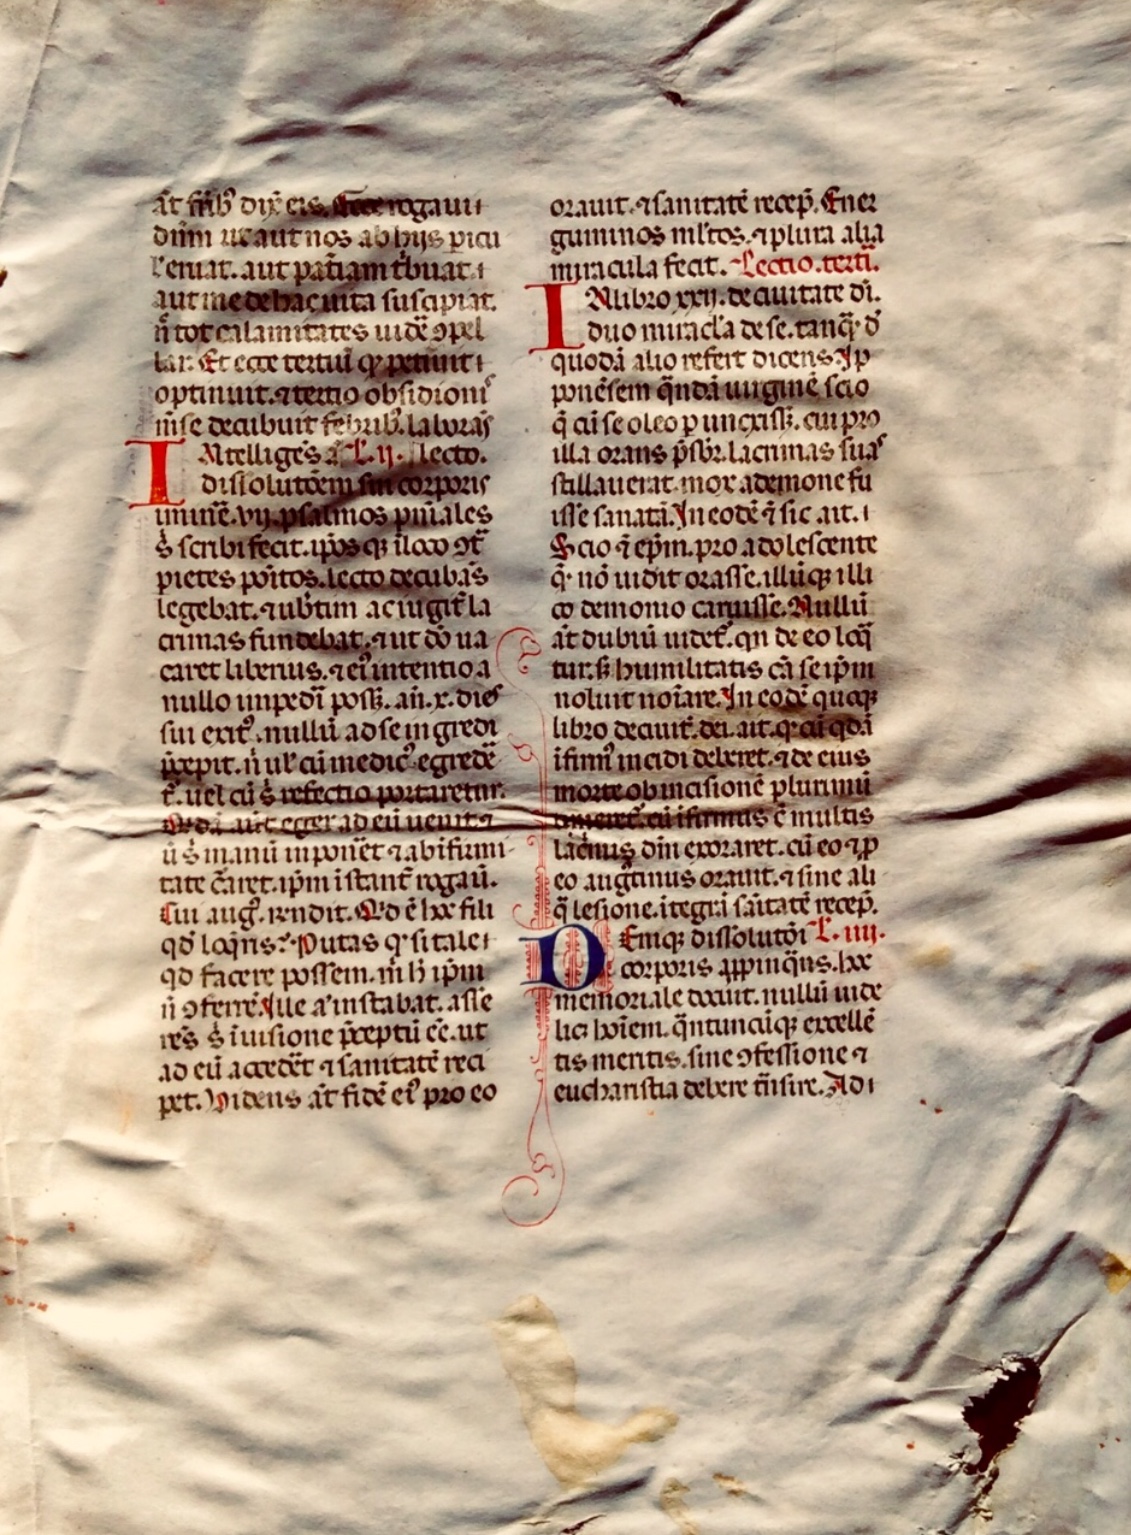 at̄ frīb⁹ dix̄ eis. Ecce rogaui
dn̄m ut aut nos ab hijs picu
l̓ eruat. aut pat̄iam t̓buat
aut me de hac uita suscipiat.
n̄ tot calamitates uidē ꝯpel
lar. Et ecce tertiū qꝫ petiuit
optinuit. ⁊ tertio obsidionis
mēse decubuit febrib⁹. laborās
INtelligēs at̄ L. ij. lecto.
dissolutōem sui corporis
iminē. vij. psalmos pn̄iales
s̓ scribi fecit. ip̄os qꝫ ī loco ꝯt̄
pietes poītos. lecto decubās
legebat. ⁊ ub̓tim ac iugit̄ la
crimas fundebat. ⁊ ut dō ua
caret liberius. ⁊ ei⁹ intentio a
nullo impedī possꝫ. an̄. x. dies
sui exit⁹. nullū ad se ingredi
p̄cepit. n̄ ul̓ cū medic⁹ egredē
t̄. uel cū s̓ refectio portaretur.
Qdā aūt eger ad eū uenit ⁊
ū s̓ manū inpōnet ⁊ ab ifirmi
tate cāret. ip̄m īstant̄ rogaū.
Cui aug⁹. rn̄dit. Qd ē hx fili
qd̓ loq̄ris? Putas q̓ si tale
qd̓ facere possem. m̓ h̓ ip̄m
n̄ ꝯferrē. Ille a' instabat. asse
rēs s̓ ī uisione p̄ceptū ēē. ut
ad eū accedēt ⁊ sanitatē reci
pet. Uidens at̄ fidē ei⁹ pro eo
orauit. ⁊ sanitatē recep̄. Ener
guminos ml̓tos. ⁊ plura alia
miracula fecit. Lectio. terti.
IN libro xxij. de ciuitate dī.
duo miracl̓a de se. tanq̄ꝫ d̓
quodā alio refert dicens. Ip
ponēsem q̄ndā uirginē scio
q̄ cū se oleo p̱unxissꝫ. cui pro
illa orans p̄sbr̄. lacrimas suas
stillauerat. mox a demone fu
isse sanatā. In eodē ī sic. ait.
Scio ⁊ ep̄m. pro adolescente
q̓. nō uidit orasse. illūqꝫ illi
co demonio caruisse. Nullū
at̄ dubiū uidet̄. qn̄ de eo loq̄
tur. sꝫ humilitatis cā se ip̄m
noluit noīare. In eodē quoqꝫ
libro de ciuit̄. dei. ait. q̓. cū qdā
ifirm⁹ incidi deberet. ⁊ de eius
morte ob incisionē plurimū
timeret̄. eū ifirmus c̄ multis
lac̓mis dm̄ exoraret. cū eo ⁊ p̱
eo augꝰtinus orauit. ⁊ sine ali
q̄ lesione. itegrā saītatē recep̄.
DEniqꝫ dissolutōi L. iiij.
corporis ꝓpinq̄ns. hx
memoriale docuit. nullū uide
lic̓ hoīem. q̄ntuncūqꝫ excellē
tis meritis. sine ꝯfessione ⁊
eucharistia debere tn̄sire. Ad